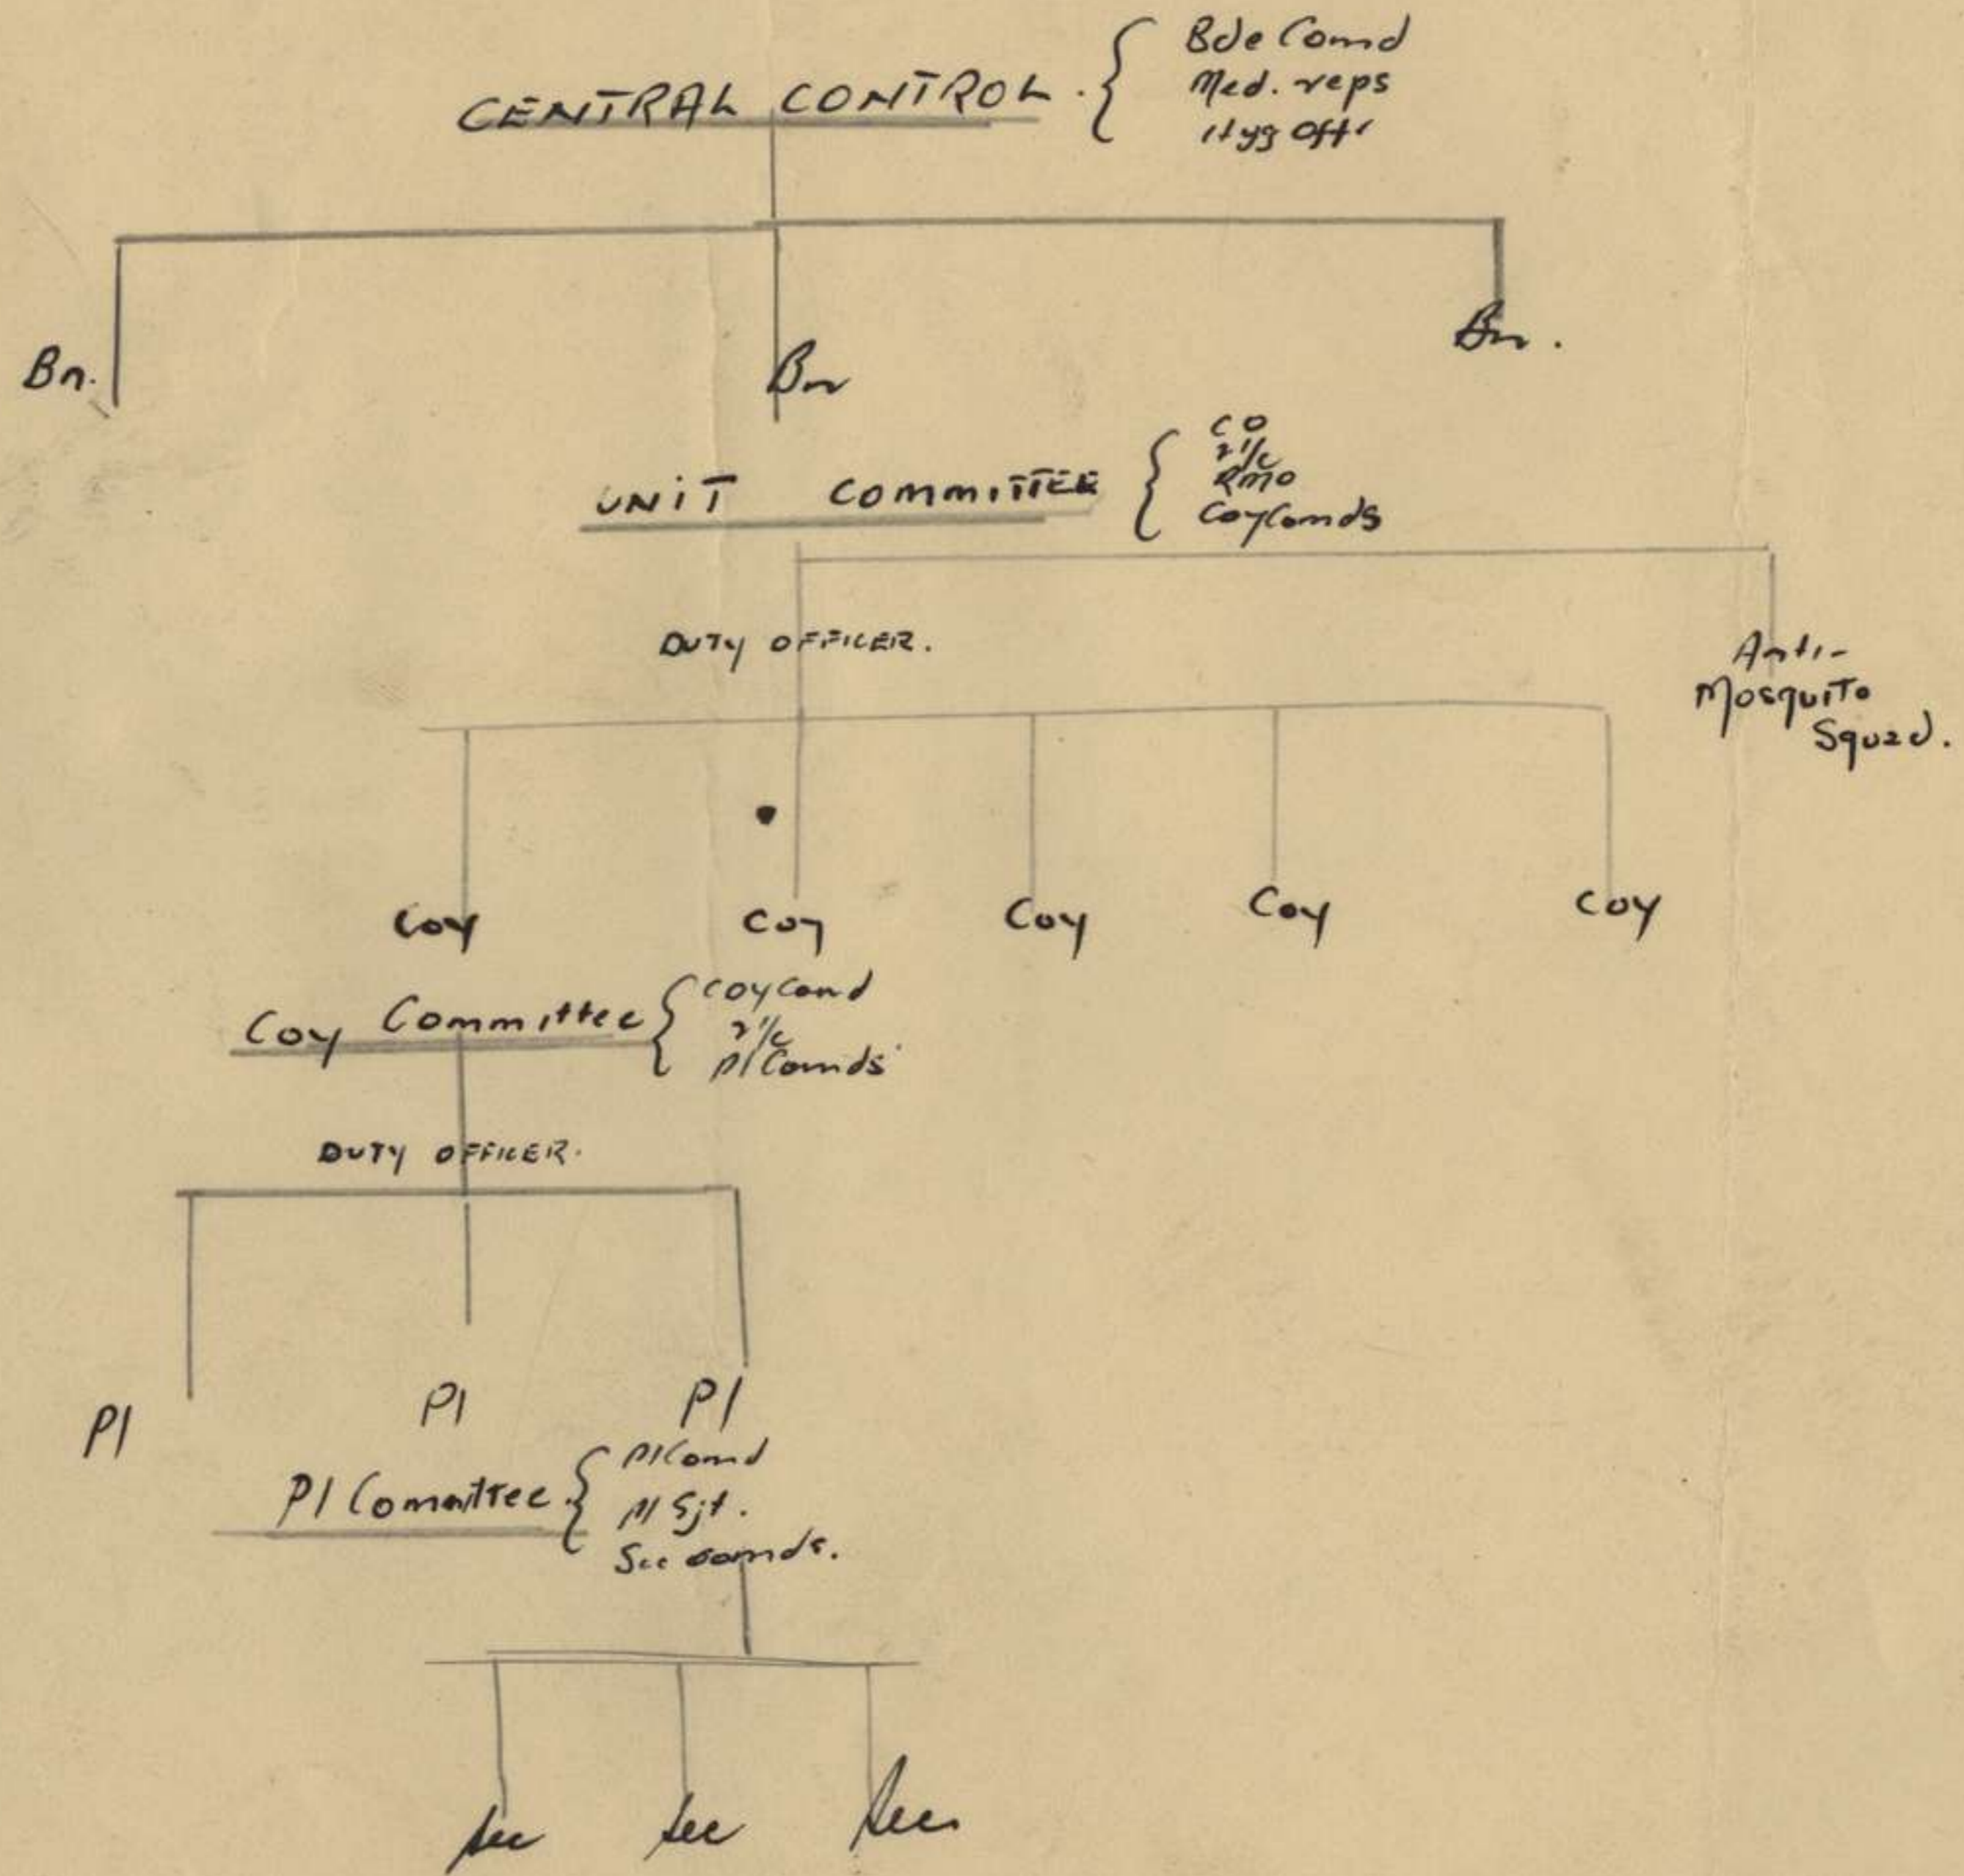 CENTRAL CONTROL.
Bde Comd
Med. reps
Hyg Offr
Bn.
Bn
Bn.
UNIT COMMITTEE
CO
2i/c
RMO
Coy Comds
DUTY OFFICER.
Anti-
Mosquito
Squad.
Coy
Coy
Coy
Coy
Coy
Coy Committee
Coy Comd
2i/c
Pl Comds
DUTY OFFICER.
Pl
Pl
Pl
Pl Committee
Pl Comd
Pl Sjt.
Sec comds.
Sec
Sec
Sec